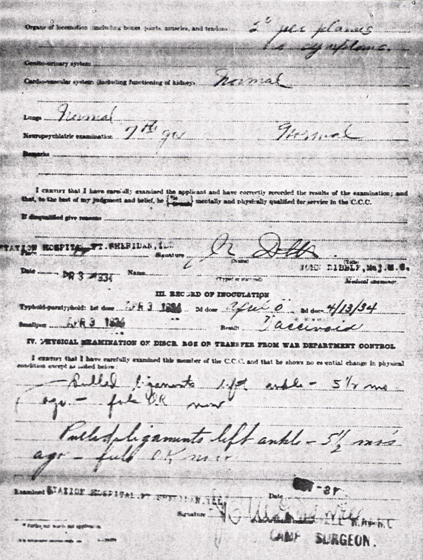 Organs of locomotion (including bones, joints, muscles, and tendons) 2° pes planus
no symptoms.
Genito-urinary system
Cardio-vascular system (including functioning of kidney) Normal
Lungs Normal
Neuropsychiatric examination 7th gr Normal
Remarks
I CERTIFY that I have carefully examined the applicant and have correctly recorded the results of the examination; and
that, to the best of my judgment and belief, he mentally and physically qualified for service in the C.C.C.
If disqualified give reasons
STATION HOSPITAL, FT. SHERIDAN, ILL. Signature
(Name) (Title)
Date APR 3 1934 Name JOHN DIBBLE, Maj. M.C.
(Typed or stamped) Medical examiner
III. RECORD OF INOCULATION
Typhoid-paratyphoid: 1st dose APR 3 1934 2d dose 3d dose 4/13/34
Smallpox APR 3 1934 Result Vaccinoid
IV. PHYSICAL EXAMINATION ON DISCHARGE OR TRANSFER FROM WAR DEPARTMENT CONTROL
I CERTIFY that I have carefully examined this member of the C.C.C. and that he shows no essential change in physical
condition except as noted below
Pulled ligaments left ankle - 5½ mo
ago - feels OK now
Pulled ligaments left ankle - 5½ mo's
ago - feels OK now
Examined STATION HOSPITAL, FT. SHERIDAN, ILL. Date
Signature
CAMP SURGEON.